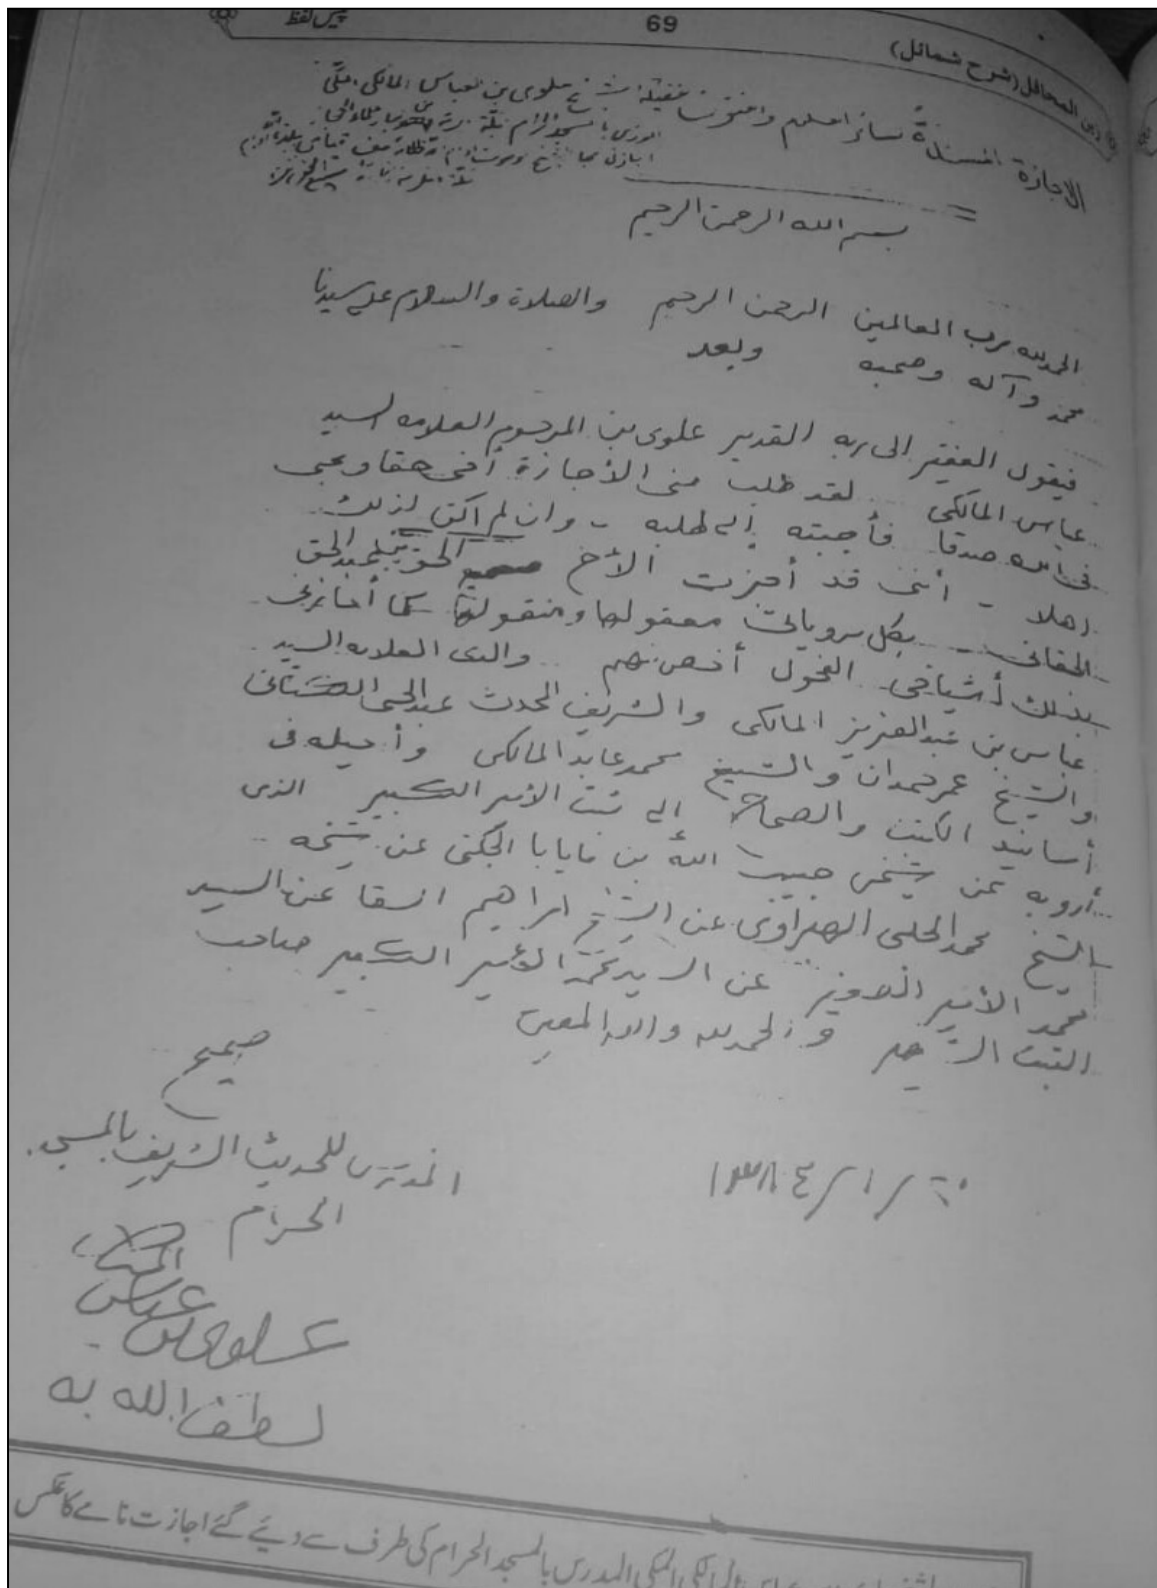 پیش لفظ
69
زین المحافل (شرح شمائل)
الاجازة المسندة لسائر العلوم والفنون من فضيلة الشيخ علوي بن العباس المالكي المكي
المدرس بالمسجد الحرام بمكة
بسم الله الرحمن الرحيم
الحمد لله رب العالمين الرحمن الرحيم والصلاة والسلام على سيدنا
محمد وآله وصحبه وبعد
فيقول الفقير الى ربه القدير علوى بن المرحوم العلامه السيد
عباس المالكى لقد طلب منى الأجازة أخى حقا ومحبى
فى الله صدقا فأجبته إلى طلبه - وان لم اكن لذلك
اهلا - أننى قد أجزت الأخ عبد الحق
الحقانى بكل مروياتى معقولها ومنقولها كما أجازنى
بذلك أشياخى الفحول أخص منهم والدى العلامه السيد
عباس بن عبد العزيز المالكى والشريف المحدث عبد الحى الكتانى
والشيخ عمر حمدان والشيخ محمد عابد المالكى وأحيله فى
أسانيد الكتب والصحاح الى ثبت الأمير الكبير الذى
أرويه عن شيخى حبيب الله بن مايابا الجكنى عن شيخه
الشيخ محمد الحلبى عن الشيخ ابراهيم السقا عن السيد
محمد الأمير الصغير عن السيد محمد الأمير الكبير صاحب
الثبت الشهير والحمد لله والله المعين
صحيح
٢٠ / ١ / ١٣٨٤
المدرس للحديث الشريف بالمسجد
الحرام
المالكى
علوى بن عباس
لطف الله به
المالکی المکی المدرس بالمسجد الحرام کی طرف سے دیئے گئے اجازت نامے کا عکس